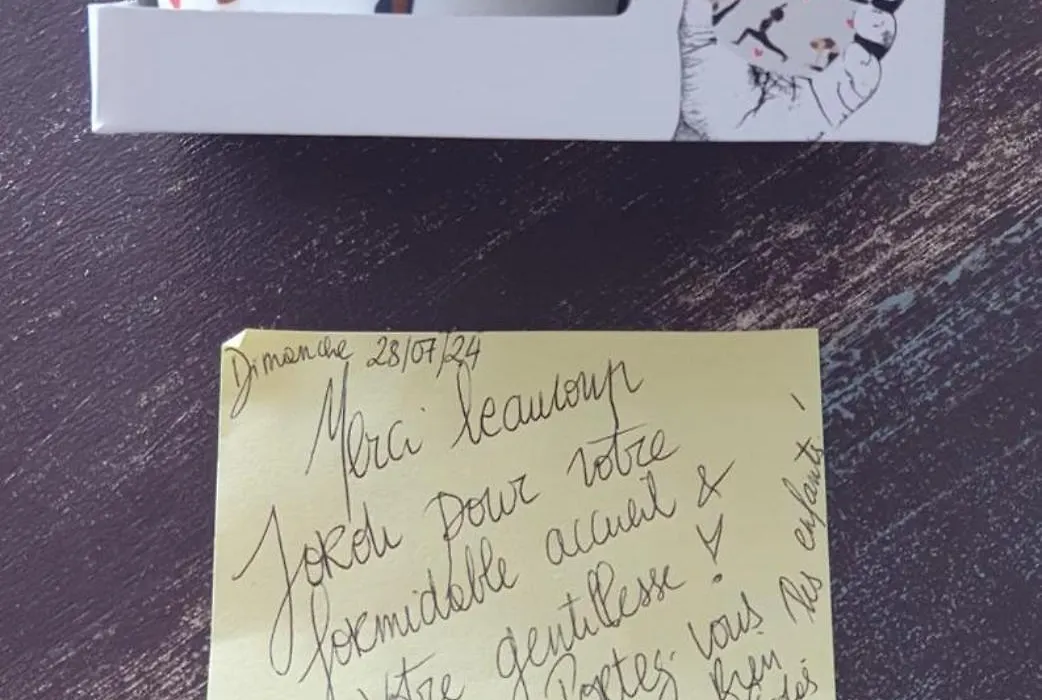 Dimanche 28/07/24
Merci beaucoup
pour votre
formidable accueil &
votre gentillesse !
Portez-vous
bien
les enfants !